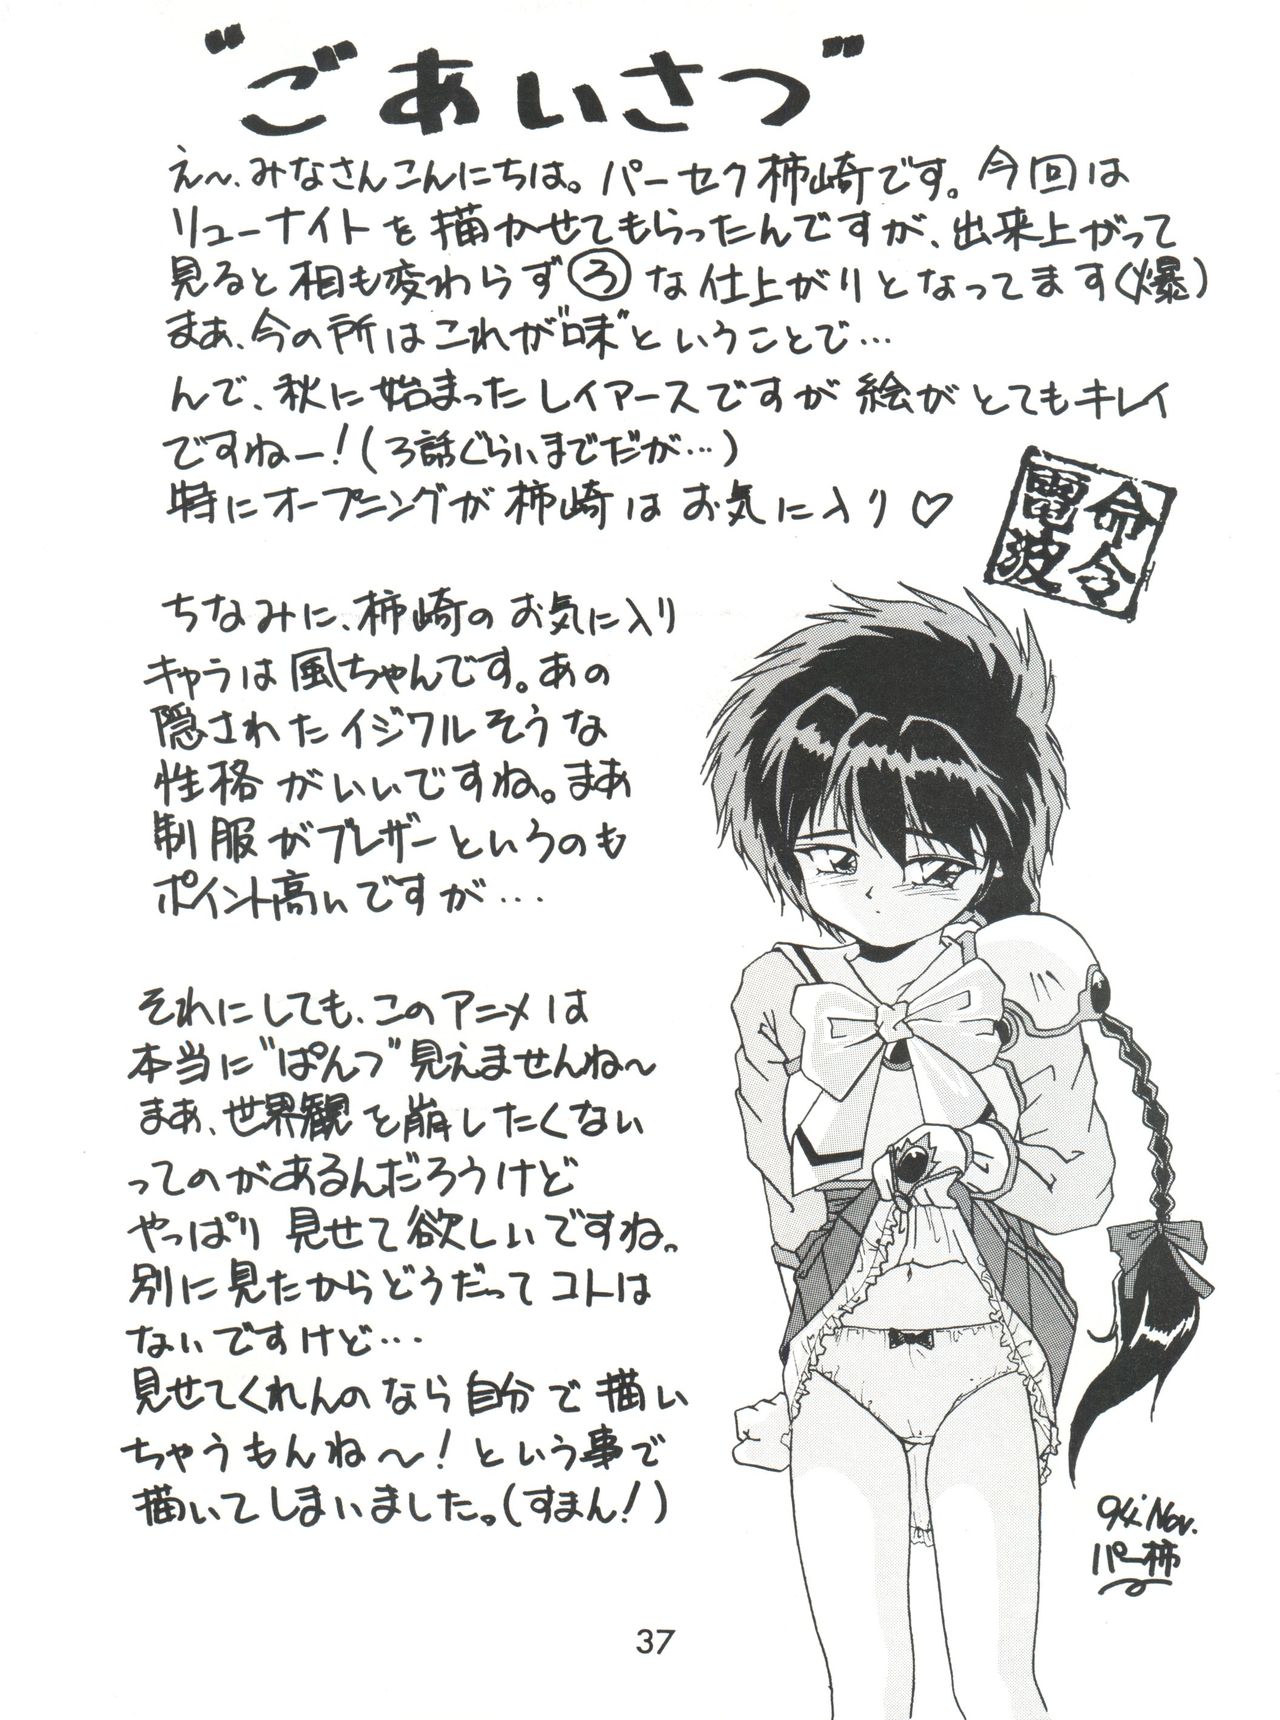 "ごあいさつ"
え〜、みなさんこんにちは。パーセク柿崎です。今回は
リューナイトを描かせてもらったんですが、出来上がって
見ると相も変わらず③な仕上がりとなってます(爆)
まあ、今の所はこれが"味"ということで…
んで、秋に始まったレイアースですが絵がとてもキレイ
ですねー!(3話ぐらいまでだが…)
特にオープニングが柿崎はお気に入り♡
命令
電波
ちなみに、柿崎のお気に入り
キャラは風ちゃんです。あの
隠されたイジワルそうな
性格がいいですね。まあ
制服がブレザーというのも
ポイント高いですが…
それにしても、このアニメは
本当に"ぱんつ"見えませんね〜
まあ、世界観を崩したくない
ってのがあるんだろうけど
やっぱり見せて欲しいですね。
別に見たからどうだってコトは
ないですけど…
見せてくれんのなら自分で描い
ちゃうもんね〜!という事で
描いてしまいました。(すまん!)
94'Nov.
パー柿
37